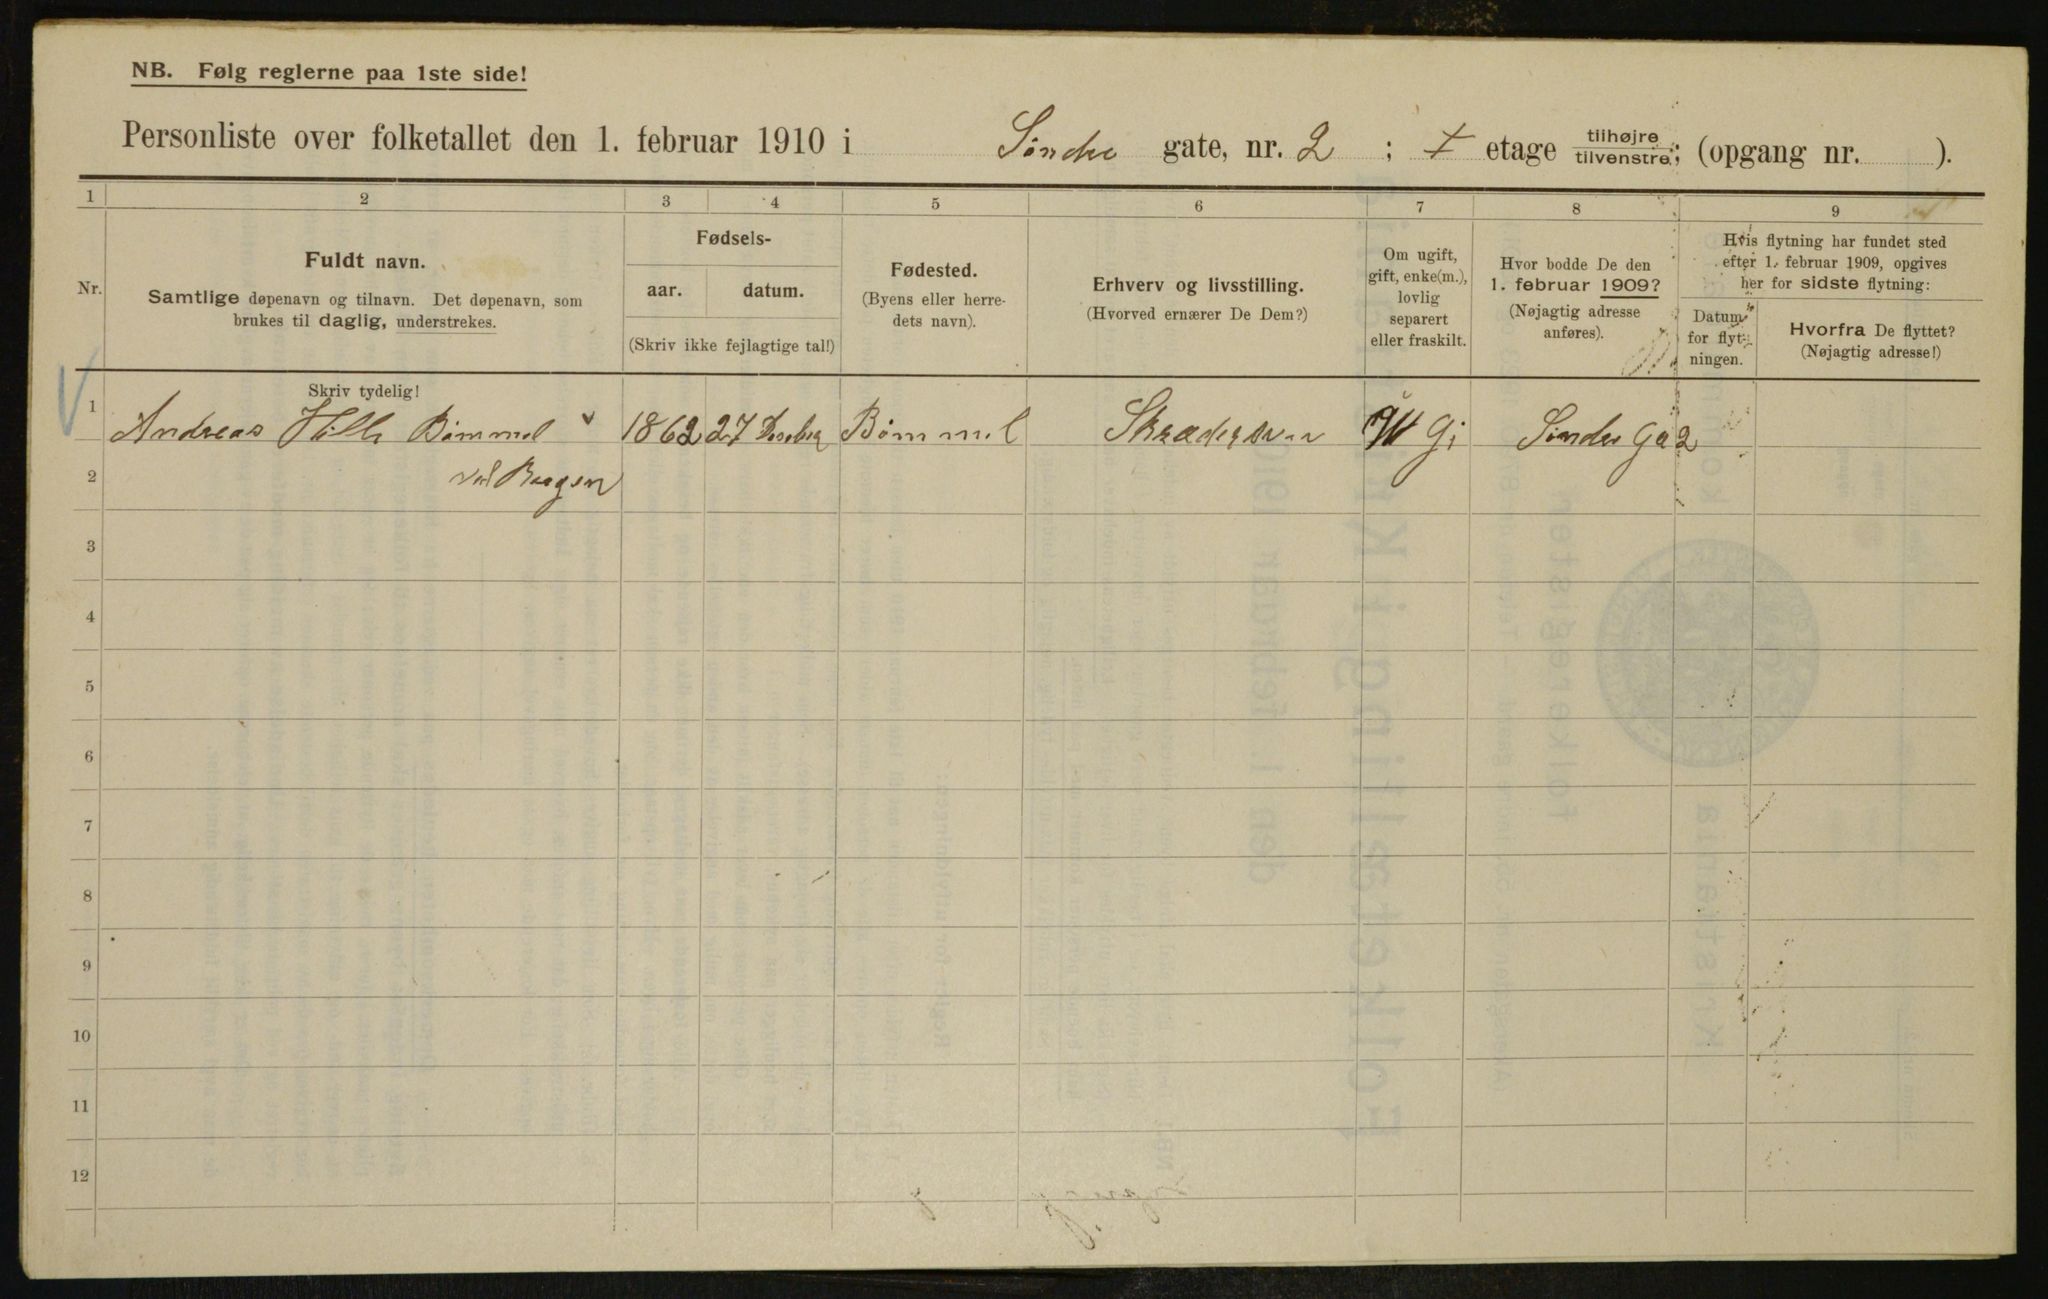 NB. Følg reglerne paa 1ste side!
Personliste over folketallet den 1. februar 1910 i Søndre gate, nr. 2 ; etage tilhøjre tilvenstre; (opgang nr. ).
1 2 3 4 5 6 7 8 9
Nr.
Fuldt navn.
Samtlige døpenavn og tilnavn. Det døpenavn, som
brukes til daglig, understrekes.
Fødsels-
aar. datum.
(Skriv ikke fejlagtige tal!)
Fødested.
(Byens eller herre-
dets navn).
Erhverv og livsstilling.
(Hvorved ernærer De Dem?)
Om ugift,
gift, enke(m.),
lovlig
separert
eller fraskilt.
Hvor bodde De den
1. februar 1909?
(Nøjagtig adresse
anføres).
Hvis flytning har fundet sted
efter 1. februar 1909, opgives
her for sidste flytning:
Datum
for flyt-
ningen.
Hvorfra De flyttet?
(Nøjagtig adresse!)
Skriv tydelig!
1 Andreas Bømmel 1862 27 Bømmel Gi Søndre Ga 2
2 ved Bergen
3
4
5
6
7
8
9
10
11
12